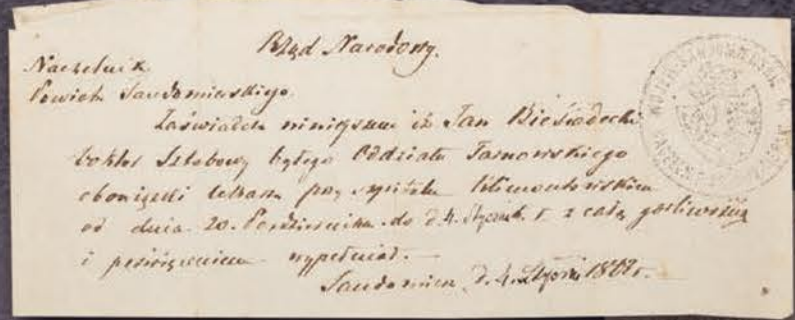 Rząd Narodowy.
Naczelnik
Powiatu Sandomierskiego
Zaświadcza niniejszem iż Jan Biesiadecki
Doktor Sztabowy byłego Oddziału
obowiązki lekarza przy szpitalu Klimontowskim
od dnia 20. Października do d. 4. Stycznia b. r. z całą gorliwością
i poświęceniem wypełniał. —
Sandomierz, d. 4. Stycznia r.